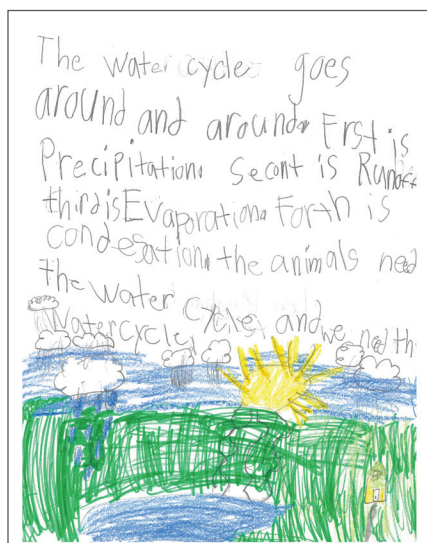 The water cycle goes
around and around. Frst is
Precipitation. Secont is Runoff
third is Evaporation. Forth is
condesation. the animals need
the water Cycle, and we need th
Watercycle.